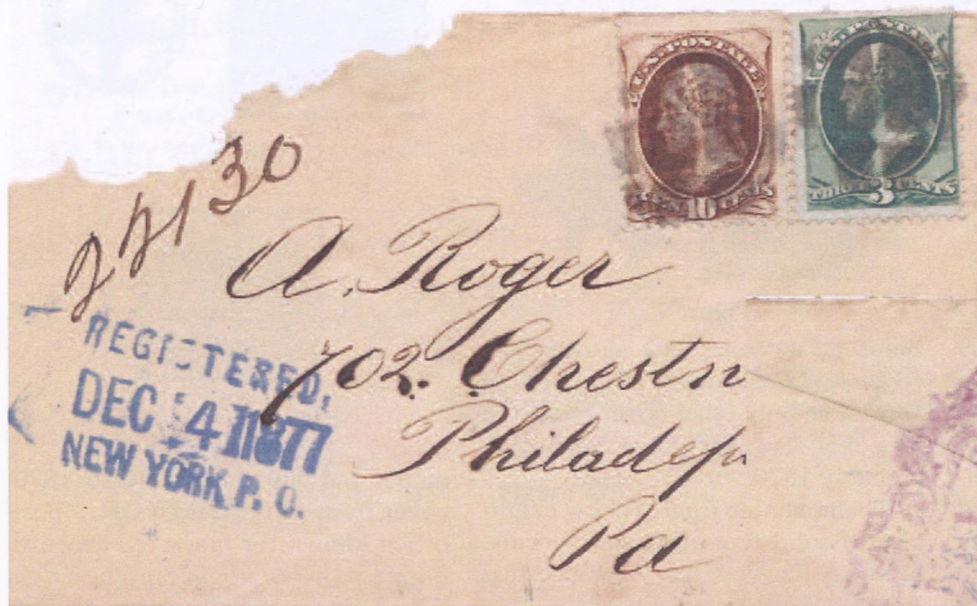 U.S. POSTAGE
TEN 10 CENTS
U.S. POSTAGE
THREE 3 CENTS
22130
A. Roger
702. Chestn
Philadep
Pa
REGISTERED,
DEC 4 1877
NEW YORK P. O.